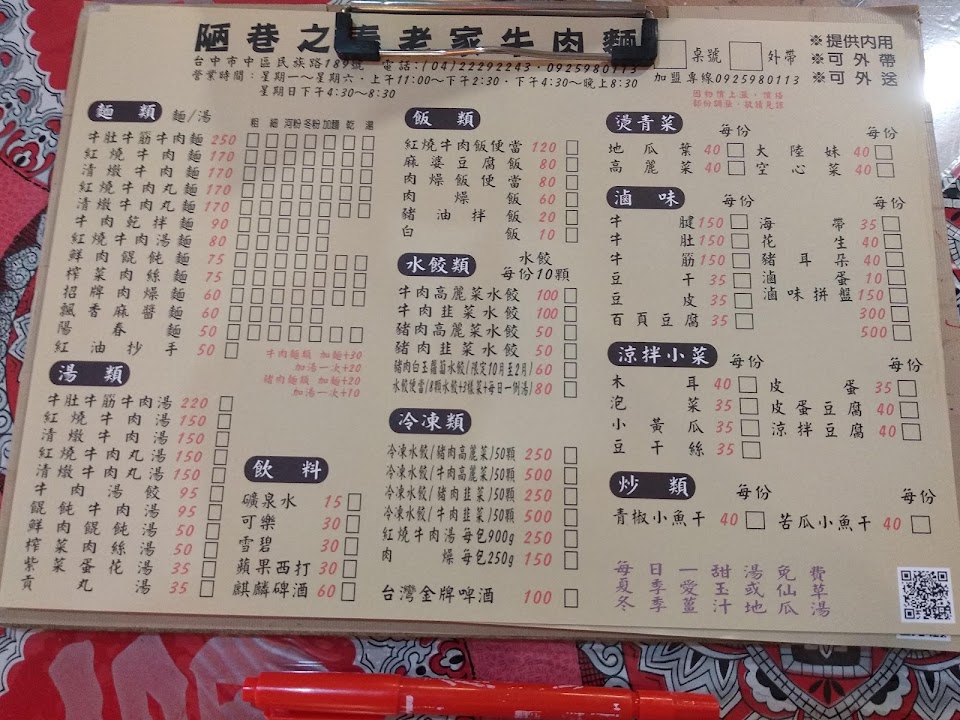 陋巷之春老家牛肉麵
台中市中區民族路189號 電話:(04)22292243·0925980113
營業時間:星期一~星期六·上午11:00~下午2:30·下午4:30~晚上8:30
星期日下午4:30~8:30
桌號 外帶
加盟專線0925980113
※提供內用
※可外帶
※可外送
麵類 麵/湯
粗 細 河粉 冬粉 加麵 乾 湯
牛肚牛筋牛肉麵 250
紅燒牛肉麵 170
清燉牛肉麵 170
紅燒牛肉丸麵 170
清燉牛肉丸麵 170
牛肉乾拌麵 90
紅燒牛肉湯麵 80
鮮肉餛飩麵 75
榨菜肉絲麵 75
招牌肉燥麵 60
飄香麻醬麵 60
陽春麵 50
紅油抄手 50
牛肉麵類 加麵+30
加湯一次+20
豬肉麵類 加麵+20
加湯一次+10
湯類
牛肚牛筋牛肉湯 220
紅燒牛肉湯 150
清燉牛肉湯 150
紅燒牛肉丸湯 150
清燉牛肉丸湯 150
牛肉湯餃 95
餛飩牛肉湯 95
鮮肉餛飩湯 50
榨菜肉絲湯 50
紫菜蛋花湯 35
貢丸湯 35
飲料
礦泉水 15
可樂 30
雪碧 30
蘋果西打 30
麒麟碑酒 60
飯類
紅燒牛肉飯便當 120
麻婆豆腐飯 80
肉燥飯便當 80
肉燥飯 60
豬油拌飯 20
白飯 10
水餃類 水餃
每份10顆
牛肉高麗菜水餃 100
牛肉韭菜水餃 100
豬肉高麗菜水餃 50
豬肉韭菜水餃 50
豬肉白玉蘿蔔水餃/(限定10月至2月) 60
水餃便當/(8顆水餃+3樣菜+每日一例湯) 80
冷凍類
冷凍水餃(豬肉高麗菜)50顆 250
冷凍水餃(牛肉高麗菜)50顆 500
冷凍水餃(豬肉韭菜)50顆 250
冷凍水餃(牛肉韭菜)50顆 500
紅燒牛肉湯 每包900g 250
肉燥 每包250g 150
台灣金牌啤酒 100
燙青菜 每份 每份
地瓜葉 40 大陸妹 40
高麗菜 40 空心菜 40
滷味 每份 每份
牛腱 150 海帶 35
牛肚 150 花生 40
牛筋 150 豬耳朵 40
豆干 35 滷蛋 10
豆皮 35 滷味拼盤 150
百頁豆腐 35 300
500
涼拌小菜 每份 每份
木耳 40 皮蛋 35
泡菜 35 皮蛋豆腐 40
小黃瓜 35 涼拌豆腐 40
豆干絲 35
炒類 每份 每份
青椒小魚干 40 苦瓜小魚干 40
每日一甜湯免費
夏季愛玉或仙草
冬季薑汁地瓜湯